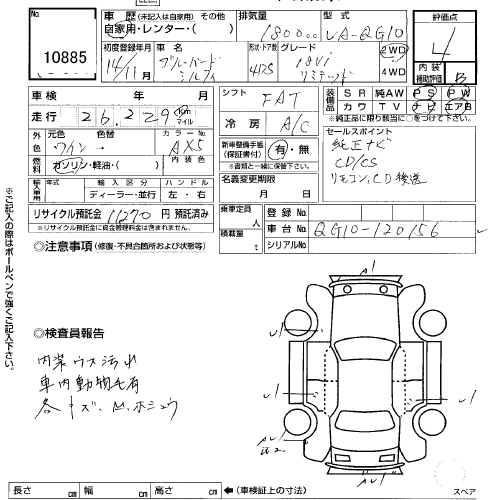 No.
10885
車歴 (未記入は自家用) その他
自家用・レンター・( )
排気量
1800cc
型式
LA-QG10
評価点
4
初度登録年月
14/11月
車名
ブルーバードシルフィ
形状・ドア数
4ドS
グレード
18Vi
リミテッド
2WD
4WD
内装
補助評価
B
車検 年 月
走行 26,229 km マイル
シフト FAT
装備品
SR 純AW PS PW
カワ TV ナビ エアB
※純正品に限り該当に○をつけて下さい。
外色
元色
ワイン
色替
カラーNo
AX5
冷房 A/C
セールスポイント
純正ナビ
CD/CS
リモコン、CD
燃料
ガソリン・軽油・( )
内装色
新車整備手帳
(保証書付)
有・無
※書類と一緒に保管して下さい。
輸入車用
年式
輸入区分
ディーラー・並行
ハンドル
左・右
名義変更期限
月 日
リサイクル預託金 11270 円 預託済み
※リサイクル預託金に資金管理料金は含まれません。
乗車定員
人
積載量
登録No.
車台No. QG10-120156
シリアルNo.
◎注意事項 (修復・不具合箇所および状態等)
※ご記入の際はボールペンで強くご記入下さい。
A1
U1
U1
◎検査員報告
内装ウス汚れ
車内動物毛有
各キズ、
U1
U1
AU1
A1
長さ cm 幅 cm 高さ cm ←(車検証上の寸法)
スペア